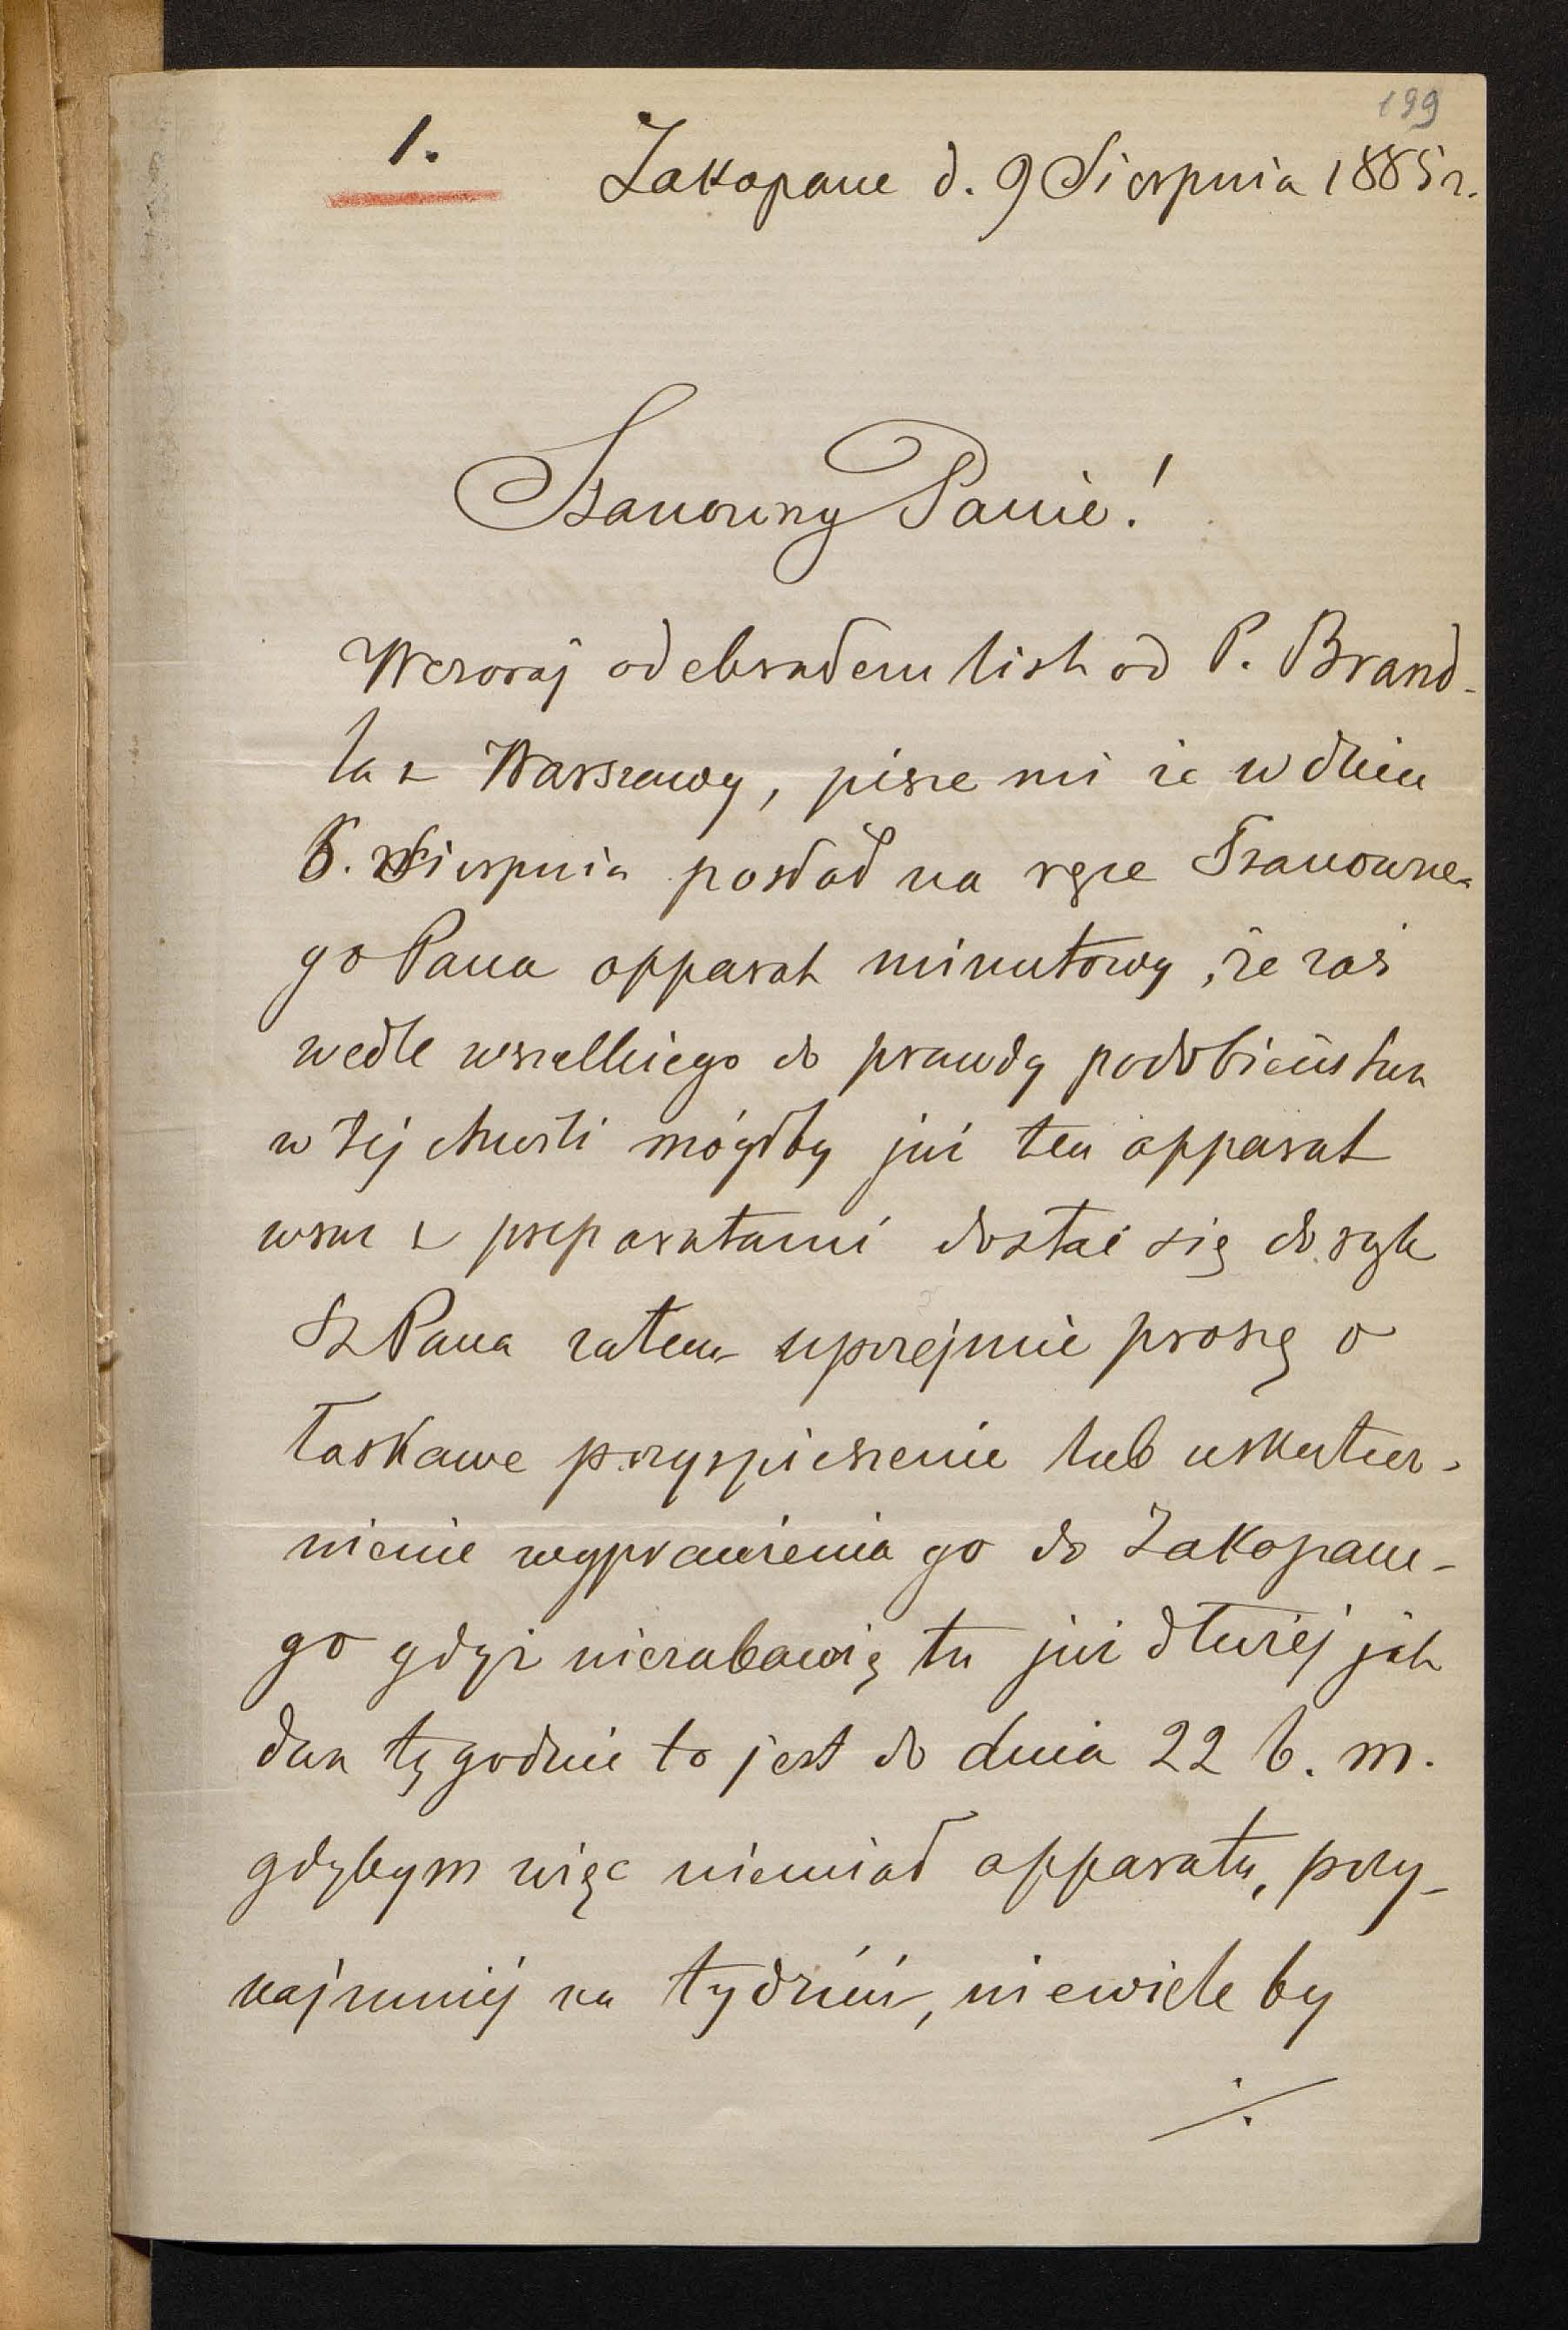 199
1. Zakopane d. 9 Sierpnia 1885 r.
Szanowny Panie!
Wczoraj odebrałem list od P. Brand-
la z Warszawy, pisze mi że w dniu
5. Sierpnia posłał na ręce Szanowne-
go Pana apparat minutowy, że zaś
wedle wszelkiego do prawdy podobieństwa
w tej chwili mógłby już ten apparat
wraz z preparatami dostać się do rąk
Sz Pana zatem uprzejmie proszę o
łaskawe przyspieszenie lub uskutecz-
nienie wyprawienia go do Zakopane-
go gdyż niezabawię tu już dłużej jak
dwa tygodnie to jest do dnia 22 b. m.
gdybym więc niemiał apparatu, przy-
najmniej na tydzień, niewiele by
./.